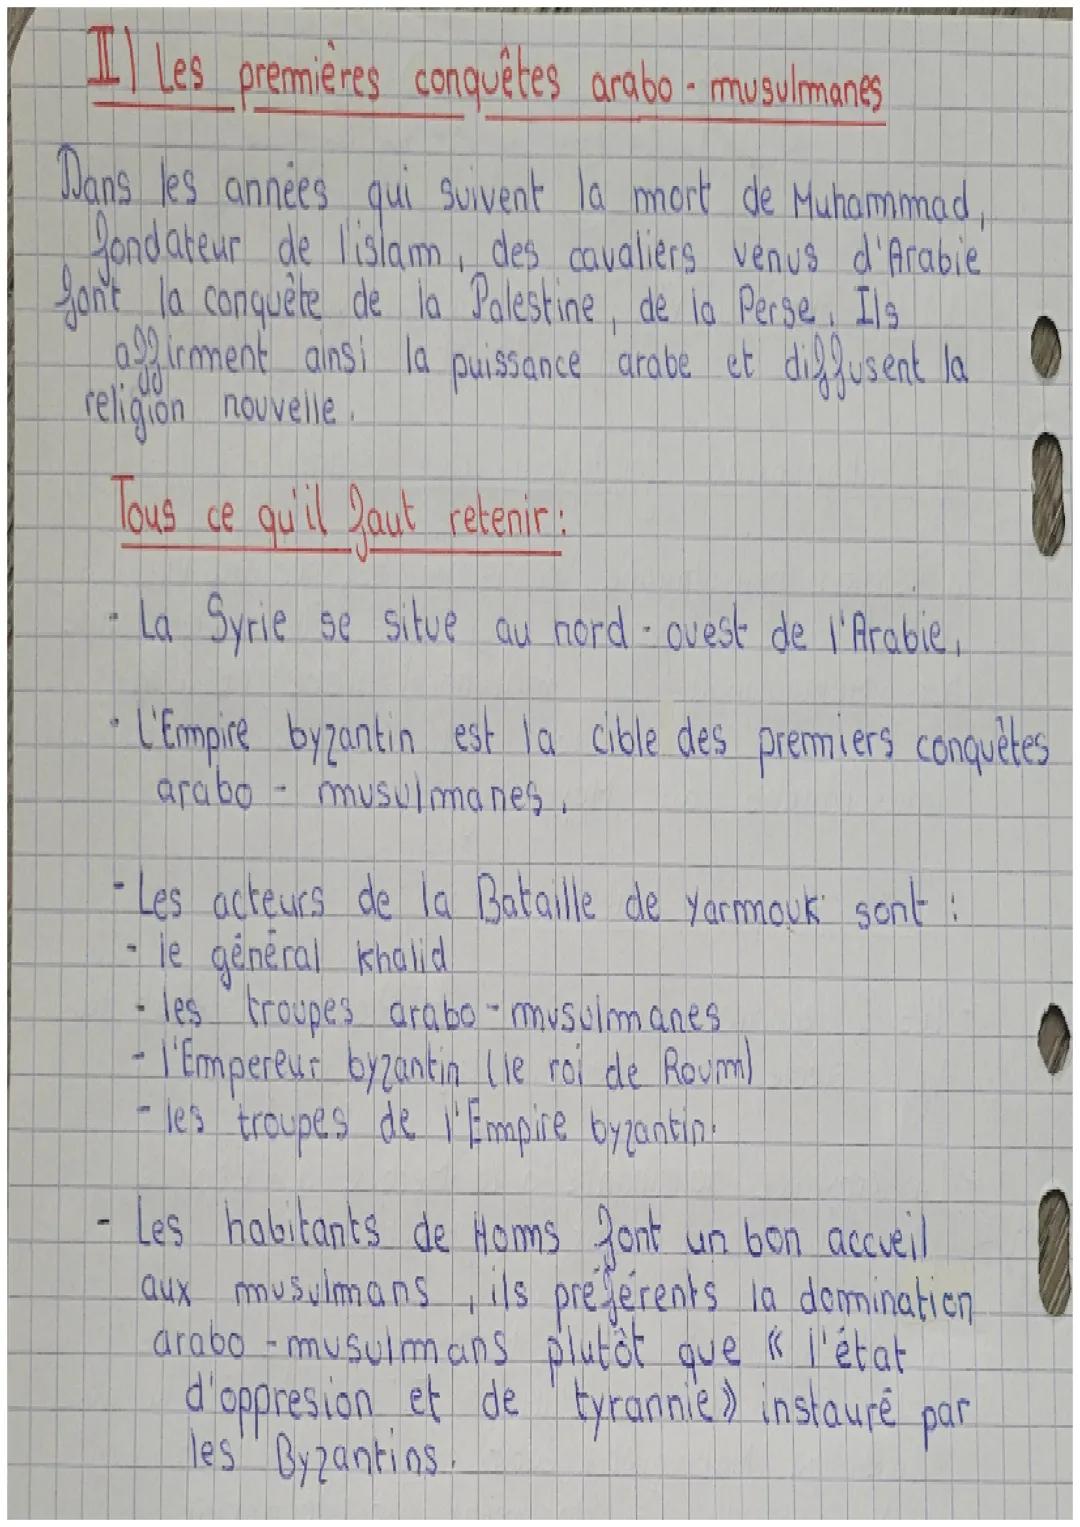 II) Les premières conquêtes arabo - musulmanes
Dans les années qui suivent la mort de Muhammad,
fondateur de l'islam, des cavaliers venus d'Arabie
font la conquête de la Palestine, de la Perse. Ils
affirment ainsi la puissance arabe et diffusent la
religion nouvelle.
Tous ce qu'il faut retenir :
- La Syrie se situe au nord - ouest de l'Arabie.
- L'Empire byzantin est la cible des premiers conquêtes
arabo - musulmanes.
- Les acteurs de la Bataille de Yarmouk sont :
- le général Khalid
- les troupes arabo - musulmanes
- l'Empereur byzantin (le roi de Roum)
- les troupes de l'Empire byzantin.
- Les habitants de Homs font un bon accueil
aux musulmans, ils préférents la domination
arabo - musulmans plutôt que « l'état
d'oppresion et de tyrannie » instauré par
les Byzantins.